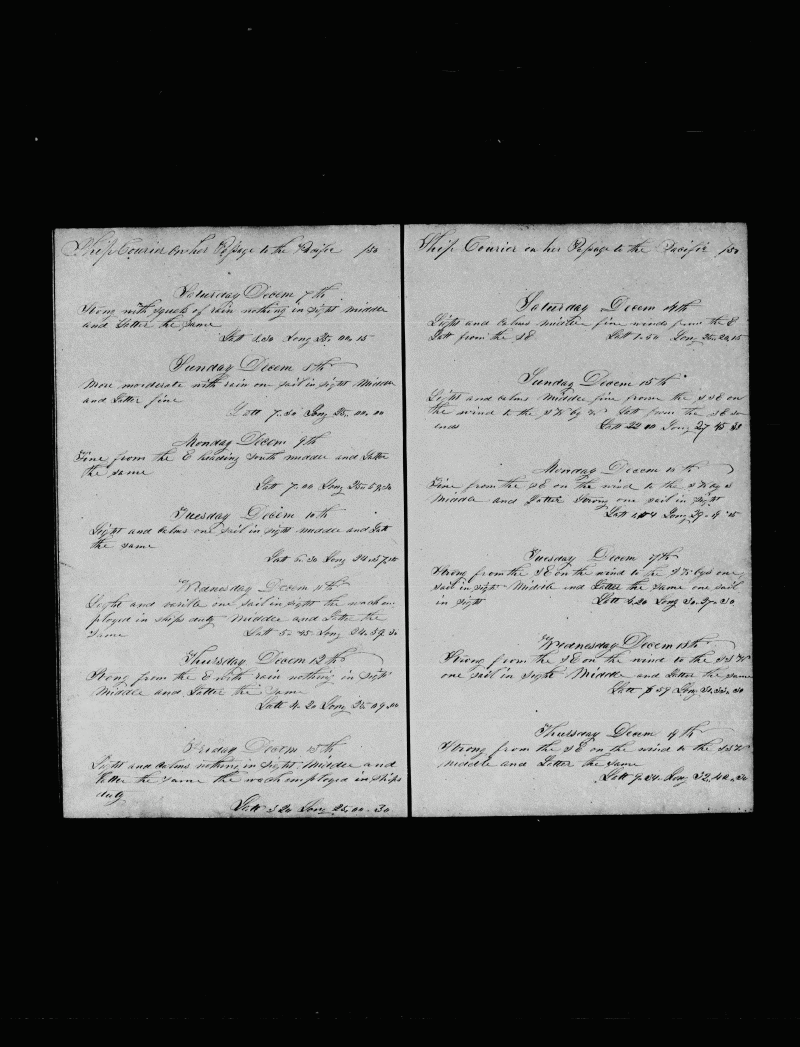 Ship Courier on her Passage to the Pacific 1850
Saturday Decem 7th
Strong with squals of rain nothing in sight middle
and Latter the same
Latt Long 25
Sunday Decem 8th
More morderate with rain one sail in sight Middle
and Latter fine
Latt 7.30 Long 25.00.00
Monday Decem 9th
Fine from the E heading South middle and Latter
the same
Latt 7.00 Long
Tuesday Decem 10th
Light and calms one sail in sight middle and Latt
the same
Latt 6.30 Long 24
Wednesday Decem 11th
Light and one sail in sight the wach em
ployed in ships duty Middle and Latter the
same Latt 5.45 Long 24.39.30
Thursday Decem 12th
Strong from the E with rain nothing in sight
Middle and Latter the same
Latt 4.20 Long 25.09.00
Friday Decem 13th
Light and calms nothing in sight Middle and
latter the same the wach employed in ships
duty
Latt 3 20 Long 25.00.30
Ship Courier on her Passage to the Pacific 1850
Saturday Decem 14th
Light and calms middle fine winds from the E
Latt from the SE Latt 1.50 Long
Sunday Decem 15th
Light and calms Middle fine from the SSE on
the wind to the SW by W Latt from the SE
ends Latt 22 00 Long 27 45 30
Monday Decem 16th
Fine from the SE on the wind to the SW by S
Middle and Latter Strong one sail in sight
Latt Long 29
Tuesday Decem 17th
Strong from the SE on the wind to the SW by S one
sail in sight Middle and Latter the same one sail
in sight Latt 4.20 Long 30.27.30
Wednesday Decem 18th
Strong from the SE on the wind to the SSW
one sail in sight Middle and Latter the same
Latt Long 31.33.30
Thursday Decem 19th
Strong from the SE on the wind to the SSW
middle and Latter the same
Latt 9.34 Long 32.40.30